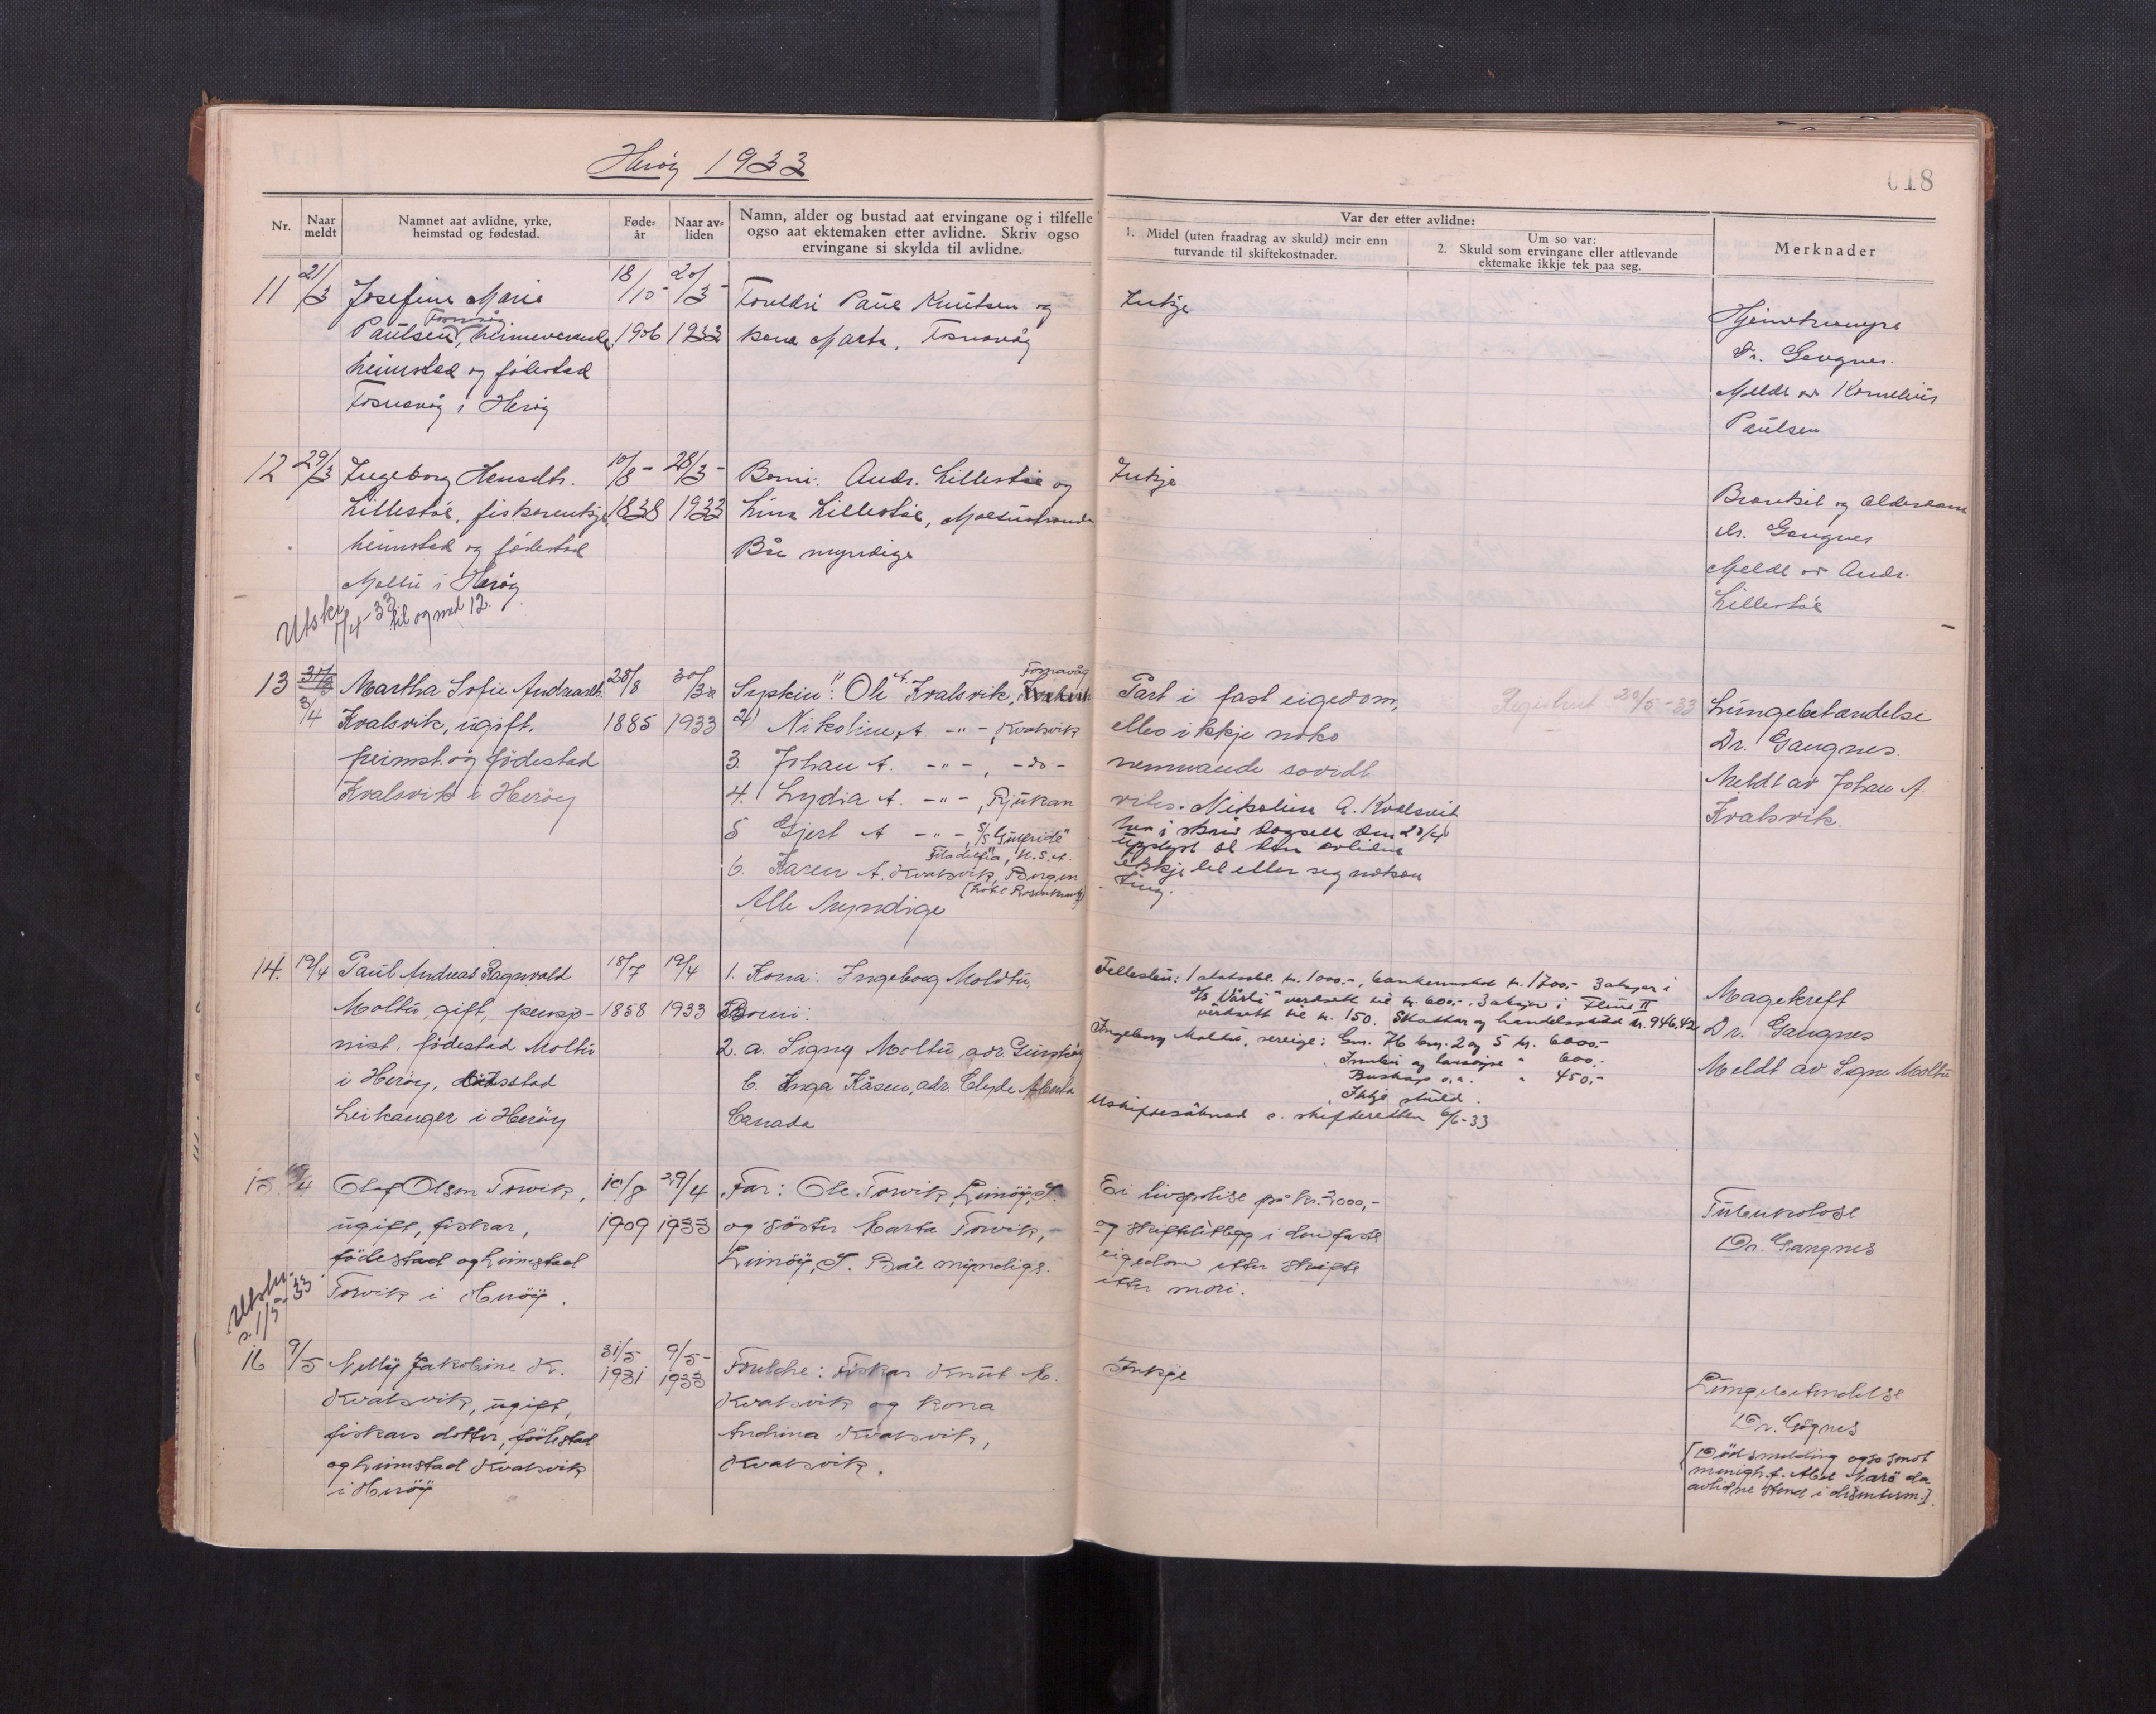 Herøy 1933
018
Nr.
Naar meldt
Namnet aat avlidne, yrke, heimstad og fødestad.
Føde-år
Naar av-liden
Namn, alder og bustad aat ervingane og i tilfelle
ogso aat ektemaken etter avlidne. Skriv ogso
ervingane si skylda til avlidne.
Var der etter avlidne:
1. Midel (uten fraadrag av skuld) meir enn
turvande til skiftekostnader.
Um so var:
2. Skuld som ervingane eller attlevande
ektemake ikkje tek paa seg.
Merknader
11 21/3 Josefine Marie 18/10- 20/3- Foreldri Paul Knutsen og Inkje
Fosnavåg
Paulsen, heimeverande, 1906 1933 kona Marta, Fosnavåg
heimstad og fødestad
Fosnavåg i Herøy
Dr. Gangnes.
Meldt av Kornelius
Paulsen
12 29/3 Ingeborg Hansdtr. 10/8- 28/3- Borni: Andr. Lillestøl og Inkje
Lillestøl, fiskarenkje, 1838 1933 Lina Lillestøl, Moltustranda
heimstad og fødestad Båe myndige
Moltu i Herøy
Bronkit og alderdom
Dr. Gangnes
Meldt av Andr.
Lillestøl
Utskr. 1/4-33 til og med 12.
13 31/3 Martha Sofie Andreasdtr. 28/8 30/3 Syskin: 1) Ole A. Kvalsvik, Fosnavåg
3/4 Kvalsvik, ugift, 1885 1933 2) Nikoline A. -"- , Kvalsvik
heimst. og fødestad 3. Johan A. -"- , -do-
Kvalsvik i Herøy 4. Lydia A. -"- , Rjukan
5 Gjert A -"- , S/S
Filadelfia, U.S.A.
6. Karen A. Kvalsvik, Bergen
(hotel Rosenkrantz)
Alle Myndige
Part i fast eigedom,
elles ikkje noko
nemnande sovidt
vites. Nikoline A. Kvalsvik
har i skriv dagsett den 28/4
upplyst at den avlidne
ikkje let etter seg nokon
ting.
Registrert 20/5-33
Lungebetændelse
Dr. Gangnes.
Meldt av Johan A
Kvalsvik.
14. 19/4 Paul Andreas Ragnvald 18/7 19/4 1. Kona: Ingeborg Moldtu,
Moltu, gift, pensjo- 1858 1933 Borni:
nist, fødestad Moltu 2. a. Signy Moltu, adr.
i Herøy, Leikanger i Herøy
b. Inga Kåsen, adr. Clyde Alberta
Canada
Felleseiu: 1 statsobl. kr. 1000.-, bankinnskot kr. 1700,- 3 aksjar i
verdsett til kr. 600.-. 3 aksjar i
verdsett til kr. 150. Skattar og handelsskuld kr. 946.42
Ingeborg Moltu, sereige: Gnr. 76 bnr. 2 og 5 kr. 6000.-
Innbu og lausøyre " 600.-
Buskap o.a. " 450,-
Ikkje skuld.
Uskiftesøknad s. skifteretten 6/6-33
Magekreft
Dr. Gangnes
Meldt av Signe Moltu
15 /4 Olaf Olsen Torvik, 10/8 29/4 Far: Ole Torvik, Leinøy, S.
ugift, fiskar, 1909 1933 og søster Marta Torvik,
fødestad og heimstad Leinøy, S. Båe myndige.
Torvik i Herøy.
Ei livspolise på kr. 2000,-
og skifteutlegg i den faste
eigedom etter skifte
etter mori.
Tuberkolose
Dr. Gangnes
Utskr. s. 1/5-33
16 9/5 Nelly Jakobine K. 31/5 9/5- Foreldre: Fiskar Knut M. Inkje
Kvalsvik, ugift, 1931 1933 Kvalsvik og kona
fiskars dotter, fødestad Andrina Kvalsvik,
og heimstad Kvalsvik Kvalsvik.
i Herøy
Lungebetendelse
Dr. Gagnes